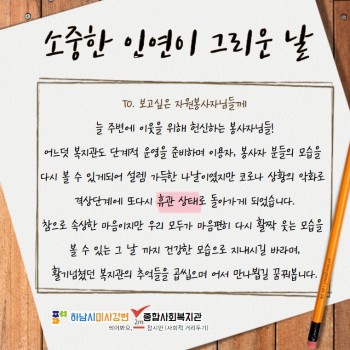 소중한 인연이 그리운 날
TO. 보고싶은 자원봉사자님들께
늘 주변에 이웃을 위해 헌신하는 봉사자님들!
어느덧 복지관도 단계적 운영을 준비하며 이용자, 봉사자 분들의 모습을
다시 볼 수 있게되어 설렘 가득한 나날이였지만 코로나 상황의 악화로
격상단계에 또다시 휴관 상태로 돌아가게 되었습니다.
참으로 속상한 마음이지만 우리 모두가 마음편히 다시 활짝 웃는 모습을
볼 수 있는 그 날 까지 건강한 모습으로 지내시길 바라며,
활기넘쳤던 복지관의 추억들을 곱씹으며 어서 만나뵙길 꿈꿔봅니다.
하남시미사강변 종합사회복지관
띄어봐요, 2m 잠시만 (사회적 거리두기)